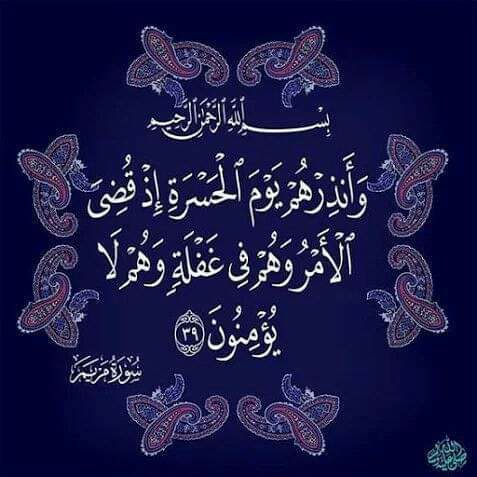 بِسْمِ اللَّهِ الرَّحْمَٰنِ الرَّحِيمِ
وَأَنذِرْهُمْ يَوْمَ ٱلْحَسْرَةِ إِذْ قُضِىَ
ٱلْأَمْرُ وَهُمْ فِى غَفْلَةٍ وَهُمْ لَا
يُؤْمِنُونَ ٣٩
سُورَة مَريَم